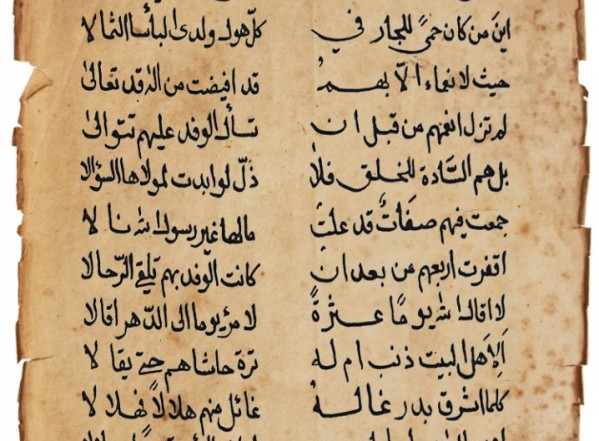 اين من كان حمىً للجار في كل هول ولدى البأسا الثمالا
حيث لا نعماء الّا بهم قد افيضت من اله قد تعالىٰ
لم تزل انعمهم من قبل ان تسأل الوفد عليهم تتوالىٰ
بل هم السّادة للخلق فلا ذلّ لو ابدت لمولاها السؤالا
جمعت فيهم صفاتٌ قد علت ما لها غير رسول الله نالا
اقفرت اربعهم من بعد ان كانت الوفد بهم تلقي الرّحالا
لا اقال الله يومًا عثرةً لامرٍئ يوما الى الدّهر اقالا
ألِأهل البيت ذنب ام له ترة حاشاهم حتى يقالا
كلما اشرق بدر غاله غائل منهم هلالاً فهلالا